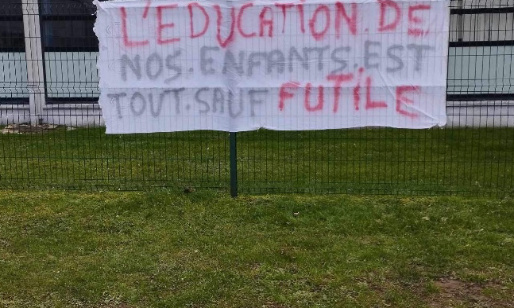 L'EDUCATION.DE
NOS.ENFANTS.EST
TOUT.SAUF FUTILE